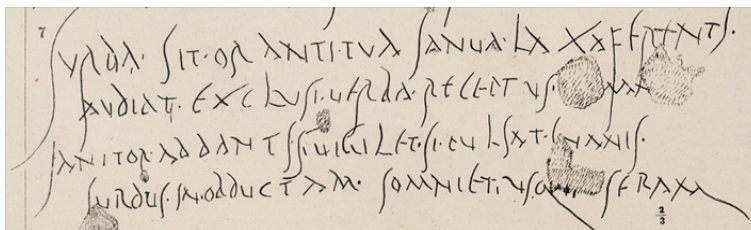 7
SVRDA· SIT· ORANTI· TVA IANVA· LAXA FERENTI·
AVDIAT· EXCLVSI· VERBA· RECEPTVS·
IANITOR· AD DANTIS VIGILET· SI· PVLSAT· INANIS·
SVRDVS· IN· OBDVCTAM· SOMNIET· SERAM
2/3